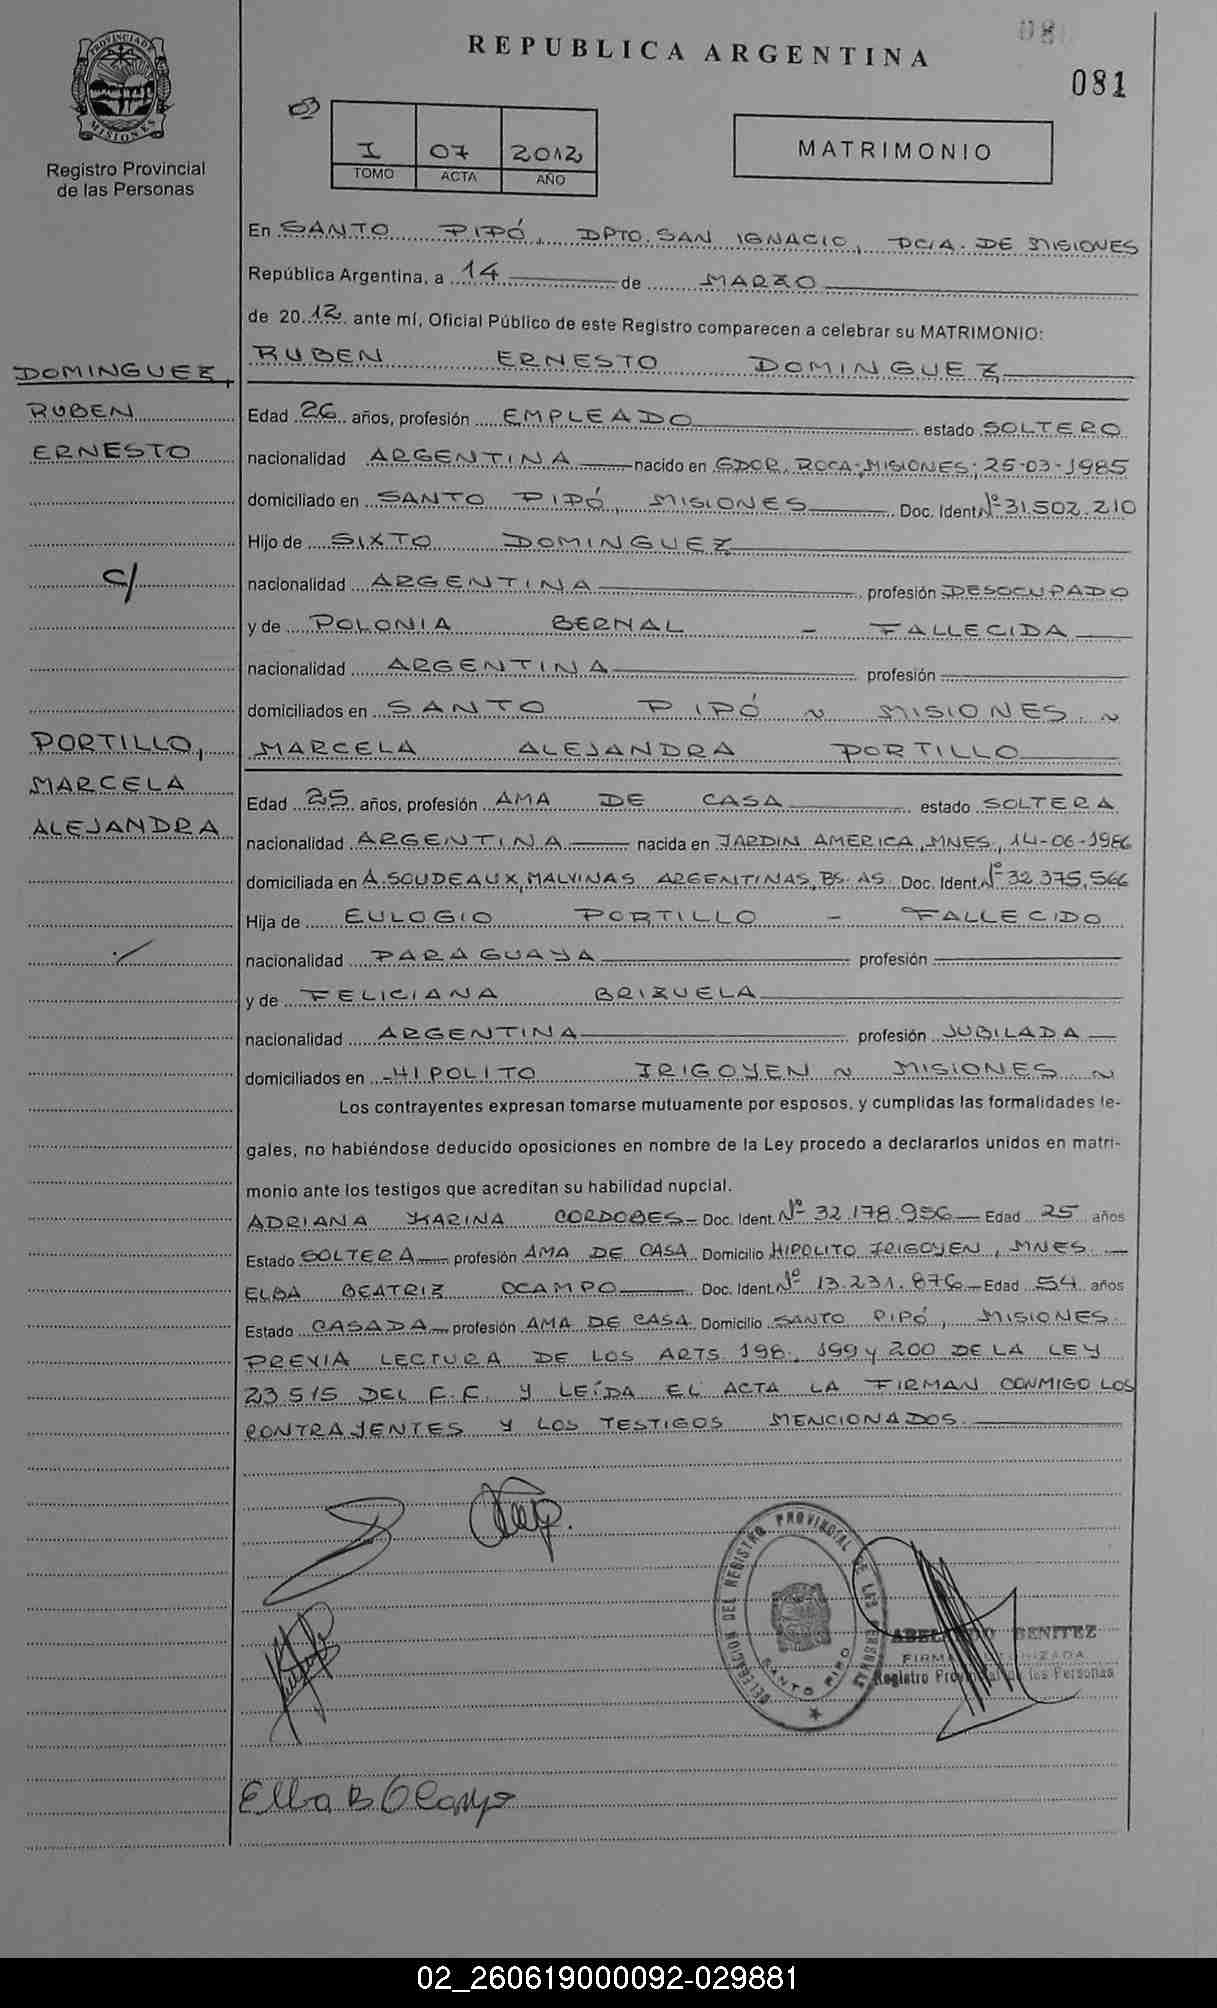 PROVINCIA DE
MISIONES
Registro Provincial
de las Personas
REPUBLICA ARGENTINA
081
I 07 2012
TOMO ACTA AÑO
MATRIMONIO
En SANTO PIPÓ, DPTO. SAN IGNACIO, PCIA. DE MISIONES
República Argentina, a 14 de MARZO
de 2012 ante mí, Oficial Público de este Registro comparecen a celebrar su MATRIMONIO:
RUBEN ERNESTO DOMINGUEZ
DOMINGUEZ,
RUBEN
ERNESTO
c/
PORTILLO,
MARCELA
ALEJANDRA
Edad 26 años, profesión EMPLEADO estado SOLTERO
nacionalidad ARGENTINA nacido en GDOR. ROCA, MISIONES; 25-03-1985
domiciliado en SANTO PIPÓ, MISIONES Doc. Ident. Nº 31.502.210
Hijo de SIXTO DOMINGUEZ
nacionalidad ARGENTINA profesión DESOCUPADO
y de POLONIA BERNAL - FALLECIDA
nacionalidad ARGENTINA profesión
domiciliados en SANTO PIPÓ ~ MISIONES ~
MARCELA ALEJANDRA PORTILLO
Edad 25 años, profesión AMA DE CASA estado SOLTERA
nacionalidad ARGENTINA nacida en JARDIN AMERICA, MNES, 14-06-1986
domiciliada en A. SOUDEAUX, MALVINAS ARGENTINAS, BS. AS. Doc. Ident. Nº 32.375.566
Hija de EULOGIO PORTILLO - FALLECIDO
nacionalidad PARAGUAYA profesión
y de FELICIANA BRIZUELA
nacionalidad ARGENTINA profesión JUBILADA
domiciliados en HIPOLITO IRIGOYEN ~ MISIONES ~
Los contrayentes expresan tomarse mutuamente por esposos, y cumplidas las formalidades le-
gales, no habiéndose deducido oposiciones en nombre de la Ley procedo a declararlos unidos en matri-
monio ante los testigos que acreditan su habilidad nupcial.
ADRIANA KARINA CORDOBES Doc. Ident. Nº 32.178.956 Edad 25 años
Estado SOLTERA profesión AMA DE CASA Domicilio HIPOLITO IRIGOYEN, MNES
ELBA BEATRIZ OCAMPO Doc. Ident. Nº 13.231.876 Edad 54 años
Estado CASADA profesión AMA DE CASA Domicilio SANTO PIPÓ, MISIONES
PREVIA LECTURA DE LOS ARTS 198, 199 y 200 DE LA LEY
23.515 DEL C.C. Y LEÍDA EL ACTA LA FIRMAN CONMIGO LOS
CONTRAYENTES Y LOS TESTIGOS MENCIONADOS.
DELEGACION DEL REGISTRO PROVINCIAL DE LAS PERSONAS
SANTO PIPO
BENITEZ
Registro Provincial de las Personas
Elba B Ocampo
02_260619000092-029881